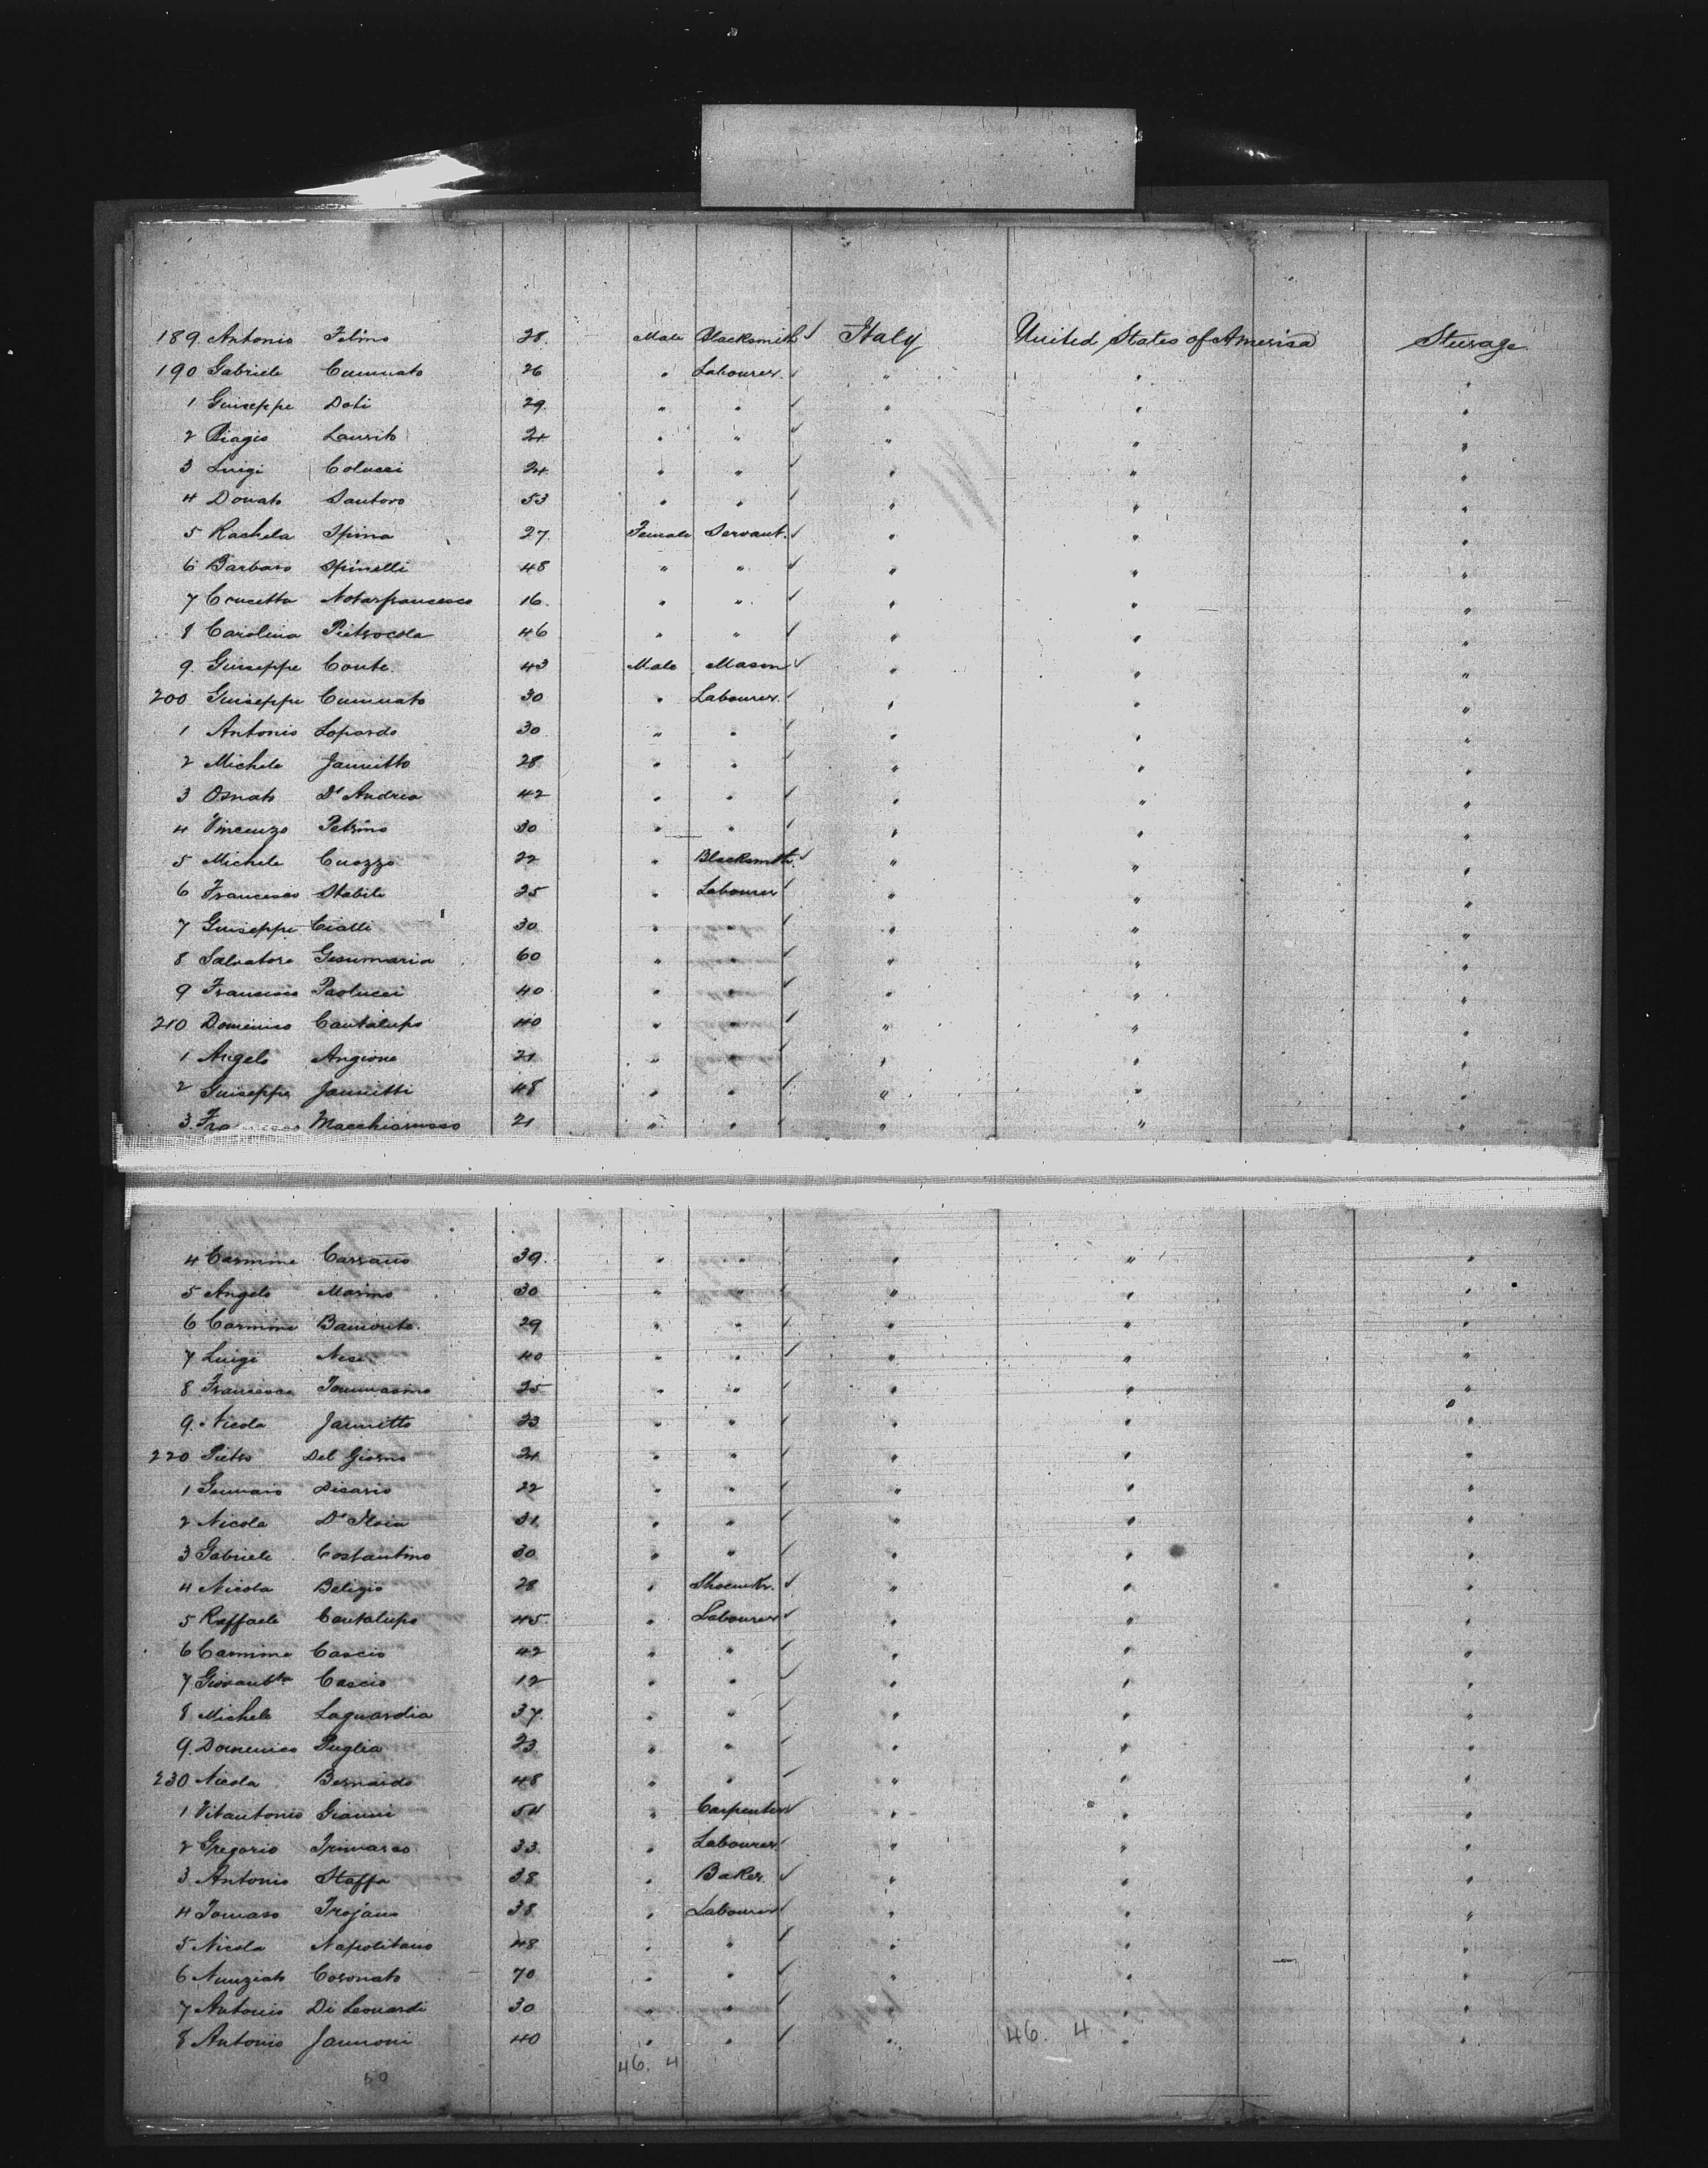 189. Antonio Felino 28. Male Blacksmith ✓ Italy United States of America Steerage
190 Gabriele Cummato 26 " Labourer. ✓ " " "
1 Guiseppe Doti 29. " " ✓ " " "
2 Biagio Laurito 24 " " ✓ " " "
3 Luigi Colucci 24. " " ✓ " " "
4 Donato Santoro 53 " " ✓ " " "
5 Rachela Spina 27 Female Servant. ✓ " " "
6 Barbara Spinelli 48 " " ✓ " " "
7 Concetta Notarfrancesco 16. " " ✓ " " "
8 Carolina Pietrocola 46 " " ✓ " " "
9. Guiseppe Conte. 43 Male Mason ✓ " " "
200 Guiseppe Cummato 30 " Labourer. ✓ " " "
1 Antonio Lopardo 30 " " ✓ " " "
2 Michele Jannitto 28 " " ✓ " " "
3 D' Andrea 42 " " ✓ " " "
4 Vincenzo Petrino 30 " " ✓ " " "
5 Michele Cuozzo 22 " Blacksmith. ✓ " " "
6 Francesco Stabile 25 " Labourer ✓ " " "
7 Guiseppe Cialli 30 " " ✓ " " "
8 Salvatore Gesumaria 60 " " ✓ " " "
9 Francesco Paolucci 40 " " ✓ " " "
210 Domenico Cantalupo 40 " " ✓ " " "
1 Angelo Angione 21 " " ✓ " " "
2 Guiseppe Jannitti 48 " " ✓ " " "
3. Macchiarusso 21 " " ✓ " " "
4 Carmine Carrano 39. " " ✓ " " "
5 Angelo Marino 30 " " ✓ " " "
6 Carmine Bamonte. 29 " " ✓ " " "
7 Luigi Nese 40 " " ✓ " " "
8 Francesco Tommasino 25 " " ✓ " " "
9. Nicola Jannitto 23 " " ✓ " " "
220 Pietro Del Giorno 24 " " ✓ " " "
1 Gennaro Dicario 22 " " ✓ " " "
2 Nicola D' 31 " " ✓ " " "
3 Gabriele Costantino 30 " " ✓ " " "
4 Nicola Beligio 28 " Shoemkr. ✓ " " "
5 Raffaele Cantalupo 45. " Labourer ✓ " " "
6 Carmine Cascio 42 " " ✓ " " "
7 Giovanbta Cascio 12 " " ✓ " " "
8 Michele Laguardia 37. " " ✓ " " "
9. Domenico Puglia 23. " " ✓ " " "
230 Nicola Bernardo 48 " " ✓ " " "
1 Vitantonio Gianni 54 " Carpenter ✓ " " "
2 Gregorio Trimarco 33. " Labourer ✓ " " "
3 Antonio Staffa 38 " Baker. ✓ " " "
4 Tomaso Trojano 38 " Labourer ✓ " " "
5 Nicola Napolitano 48 " " ✓ " " "
6 Nunziato Coronato 70 " " ✓ " " "
7 Antonio Di Leonardi 30 " " ✓ " " "
8 Antonio Jannoni 40 " " ✓ " " "
46. 4
46. 4
50